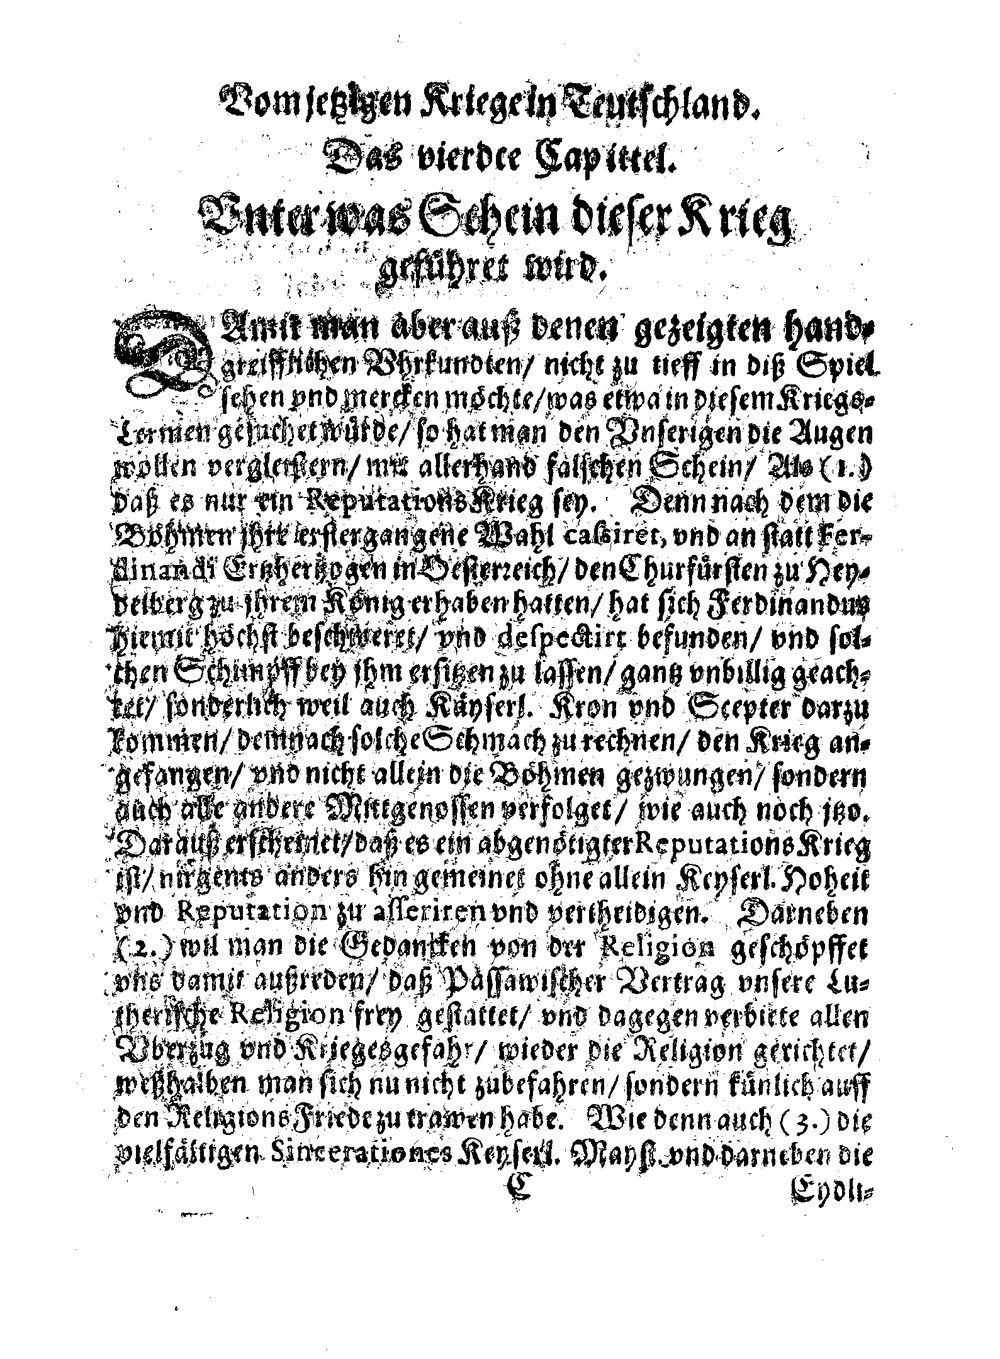 Vom jetzigen Kriege in Teutschland.
Das vierdte Capittel.
Vnter was Schein dieser Krieg
geführet wird.
DAmit man aber auß denen gezeigten hand-
greifflichen Vhrkundten/ nicht zu tieff in diß Spiel
sehen vnd mercken möchte/ was etwa in diesem Kriegs-
Lermen gesuchet würde/ so hat man den Vnserigen die Augen
wollen vergleistern/ mit allerhand falschen Schein/ Als (1.)
daß es nur ein Reputations Krieg sey. Denn nach dem die
Böhmen jhre erstergangene Wahl cassiret, vnd an statt Fer-
dinandi Ertzhertzogen in Oesterreich/ den Churfürsten zu Hey-
delberg zu jhrem König erhaben hatten/ hat sich Ferdinandus
hiemit höchst beschweret/ vnd despectirt befunden/ vnd sol-
chen Schimpff bey jhm ersitzen zu lassen/ gantz vnbillig geach-
tet/ sonderlich weil auch Käyserl. Kron vnd Scepter darzu
kommen/ demnach solche Schmach zu rechnen/ den Krieg an-
gefangen/ vnd nicht allein die Böhmen gezwungen/ sondern
auch alle andere Mittgenossen verfolget/ wie auch noch jtzo.
Darauß erscheinet/ daß es ein abgenötigter Reputations Krieg
ist/ nirgents anders hin gemeinet ohne allein Keyserl. Hoheit
vnd Reputation zu asseriren vnd vertheidigen. Darneben
(2.) wil man die Gedancken von der Religion geschöpffet
vns damit außreden/ daß Passawischer Vertrag vnsere Lu-
therische Religion frey gestattet/ vnd dagegen verbiete allen
Vberzug vnd Kriegesgefahr/ wieder die Religion gerichtet/
weßhalben man sich nu nicht zubefahren/ sondern künlich auff
den Religions Friede zu trawen habe. Wie denn auch (3.) die
vielfältigen Sincerationes Keyserl. Mayst. vnd darneben die
C
Eydli-